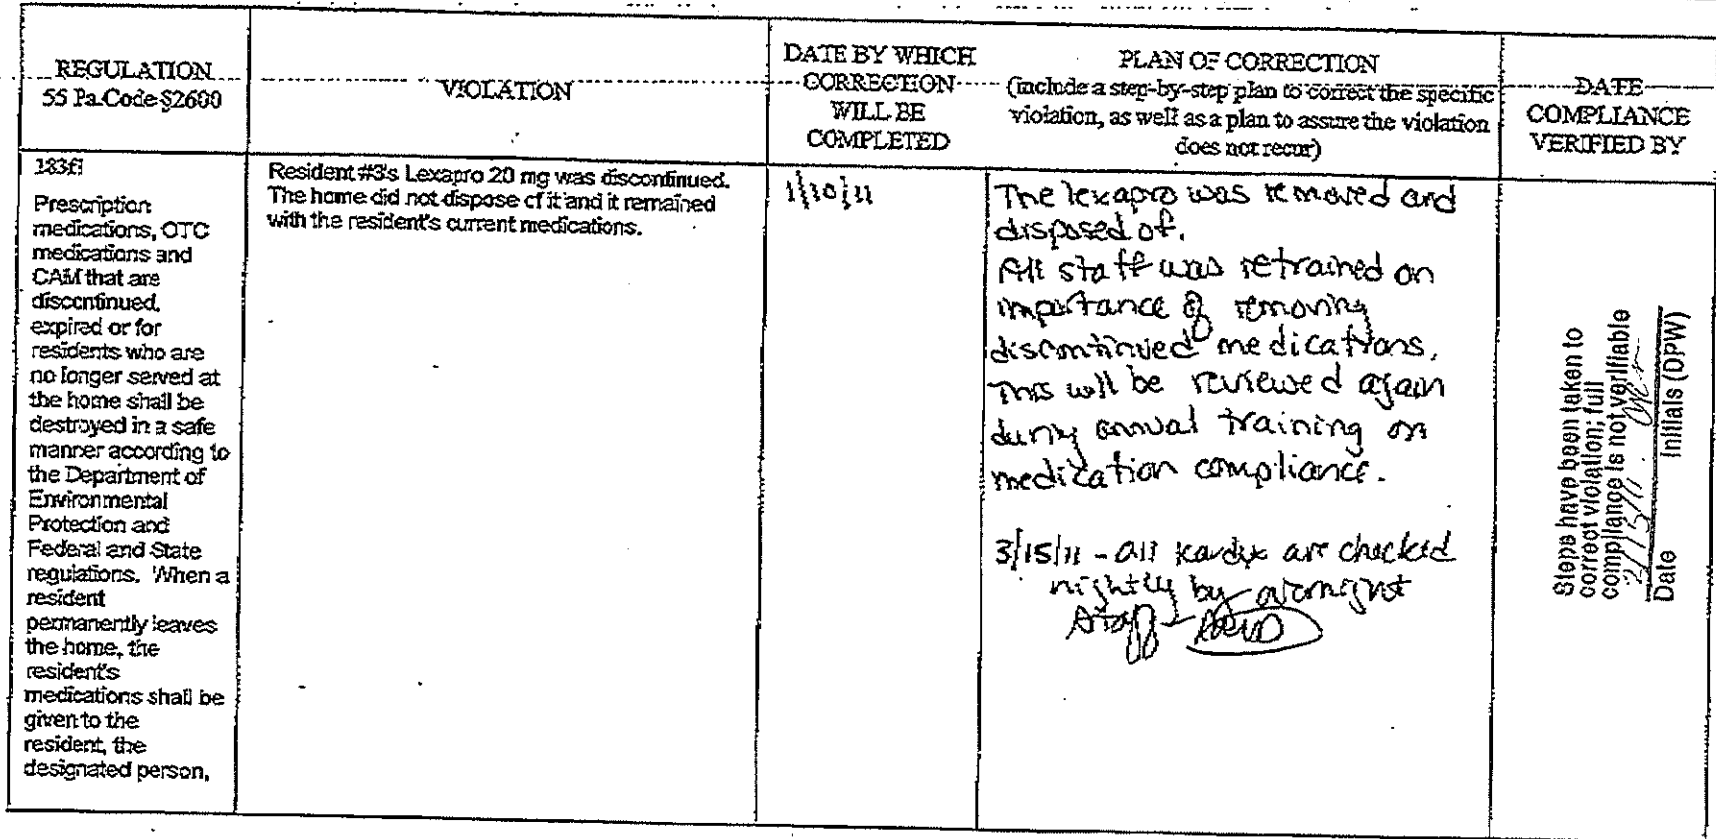 REGULATION
55 Pa.Code §2600
VIOLATION
DATE BY WHICH
CORRECTION
WILL BE
COMPLETED
PLAN OF CORRECTION
(include a step-by-step plan to correct the specific
violation, as well as a plan to assure the violation
does not recur)
DATE
COMPLIANCE
VERIFIED BY
183f
Prescription
medications, OTC
medications and
CAM that are
discontinued,
expired or for
residents who are
no longer served at
the home shall be
destroyed in a safe
manner according to
the Department of
Environmental
Protection and
Federal and State
regulations. When a
resident
permanently leaves
the home, the
resident's
medications shall be
given to the
resident, the
designated person,
Resident #3's Lexapro 20 mg was discontinued.
The home did not dispose of it and it remained
with the resident's current medications.
1/10/11
The lexapro was removed and
disposed of.
All staff was retrained on
importance of removing
discontinued medications.
This will be reviewed again
during annual training on
medication compliance.
3/15/11 - all kardex are checked
nightly by overnight
staff -
Steps have been taken to
correct violation; full
compliance is not verifiable
/15/11
Date Initials (DPW)